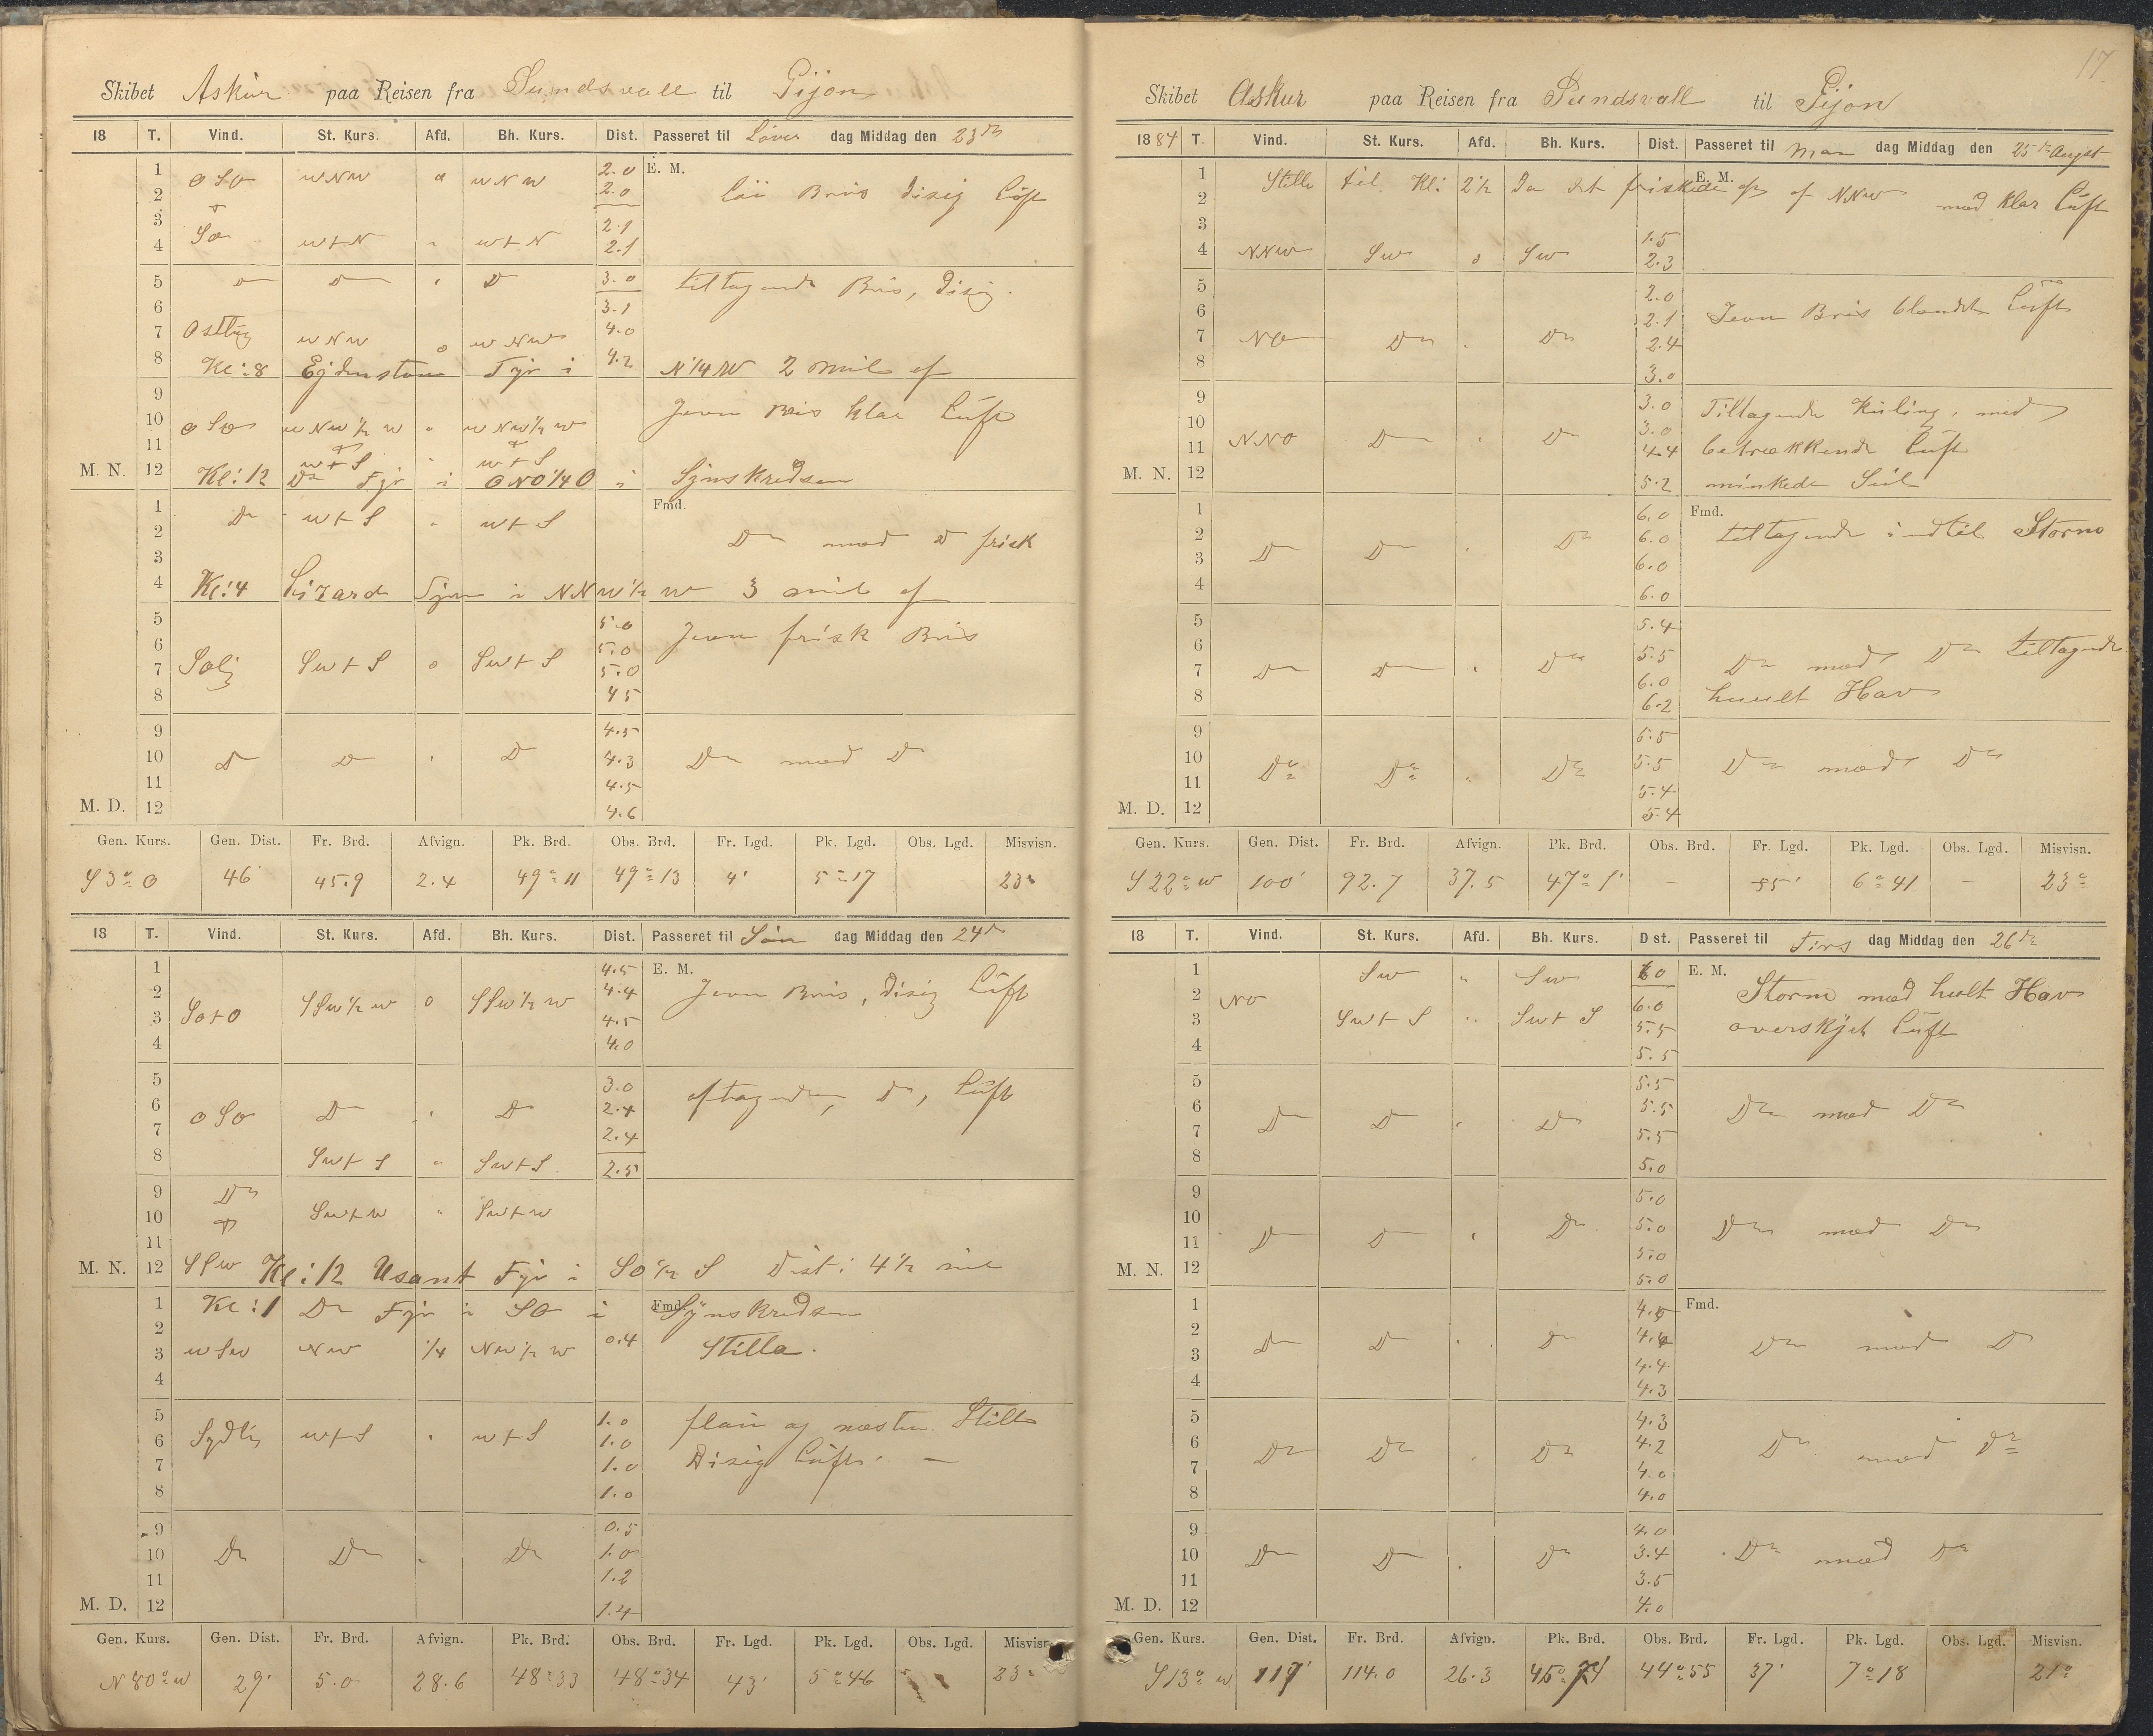 Skibet Askur paa Reisen fra Sundsvall til Gijon
18 T. Vind. St. Kurs. Afd. Bh. Kurs. Dist. Passeret til Løver dag Middag den 23de
1 2.0 E. M.
OSO WNW 0 WNW 2.0 Løi Bris disig Luft
2
3 2.1
4 SO WtN " WtN 2.1
5 D D " D 3.0 tiltagende Bris, Disig.
6 3.1
7 Ostlig WNW 0 WNW 4.0
8 Kl: 8 Fyr i 4.2 N 1/4 W 2 Mil af
9
10 OSO WNW 1/2 W " WNW 1/2 W Jevn Bris klar Luft
11 WtS " WtS
M. N. 12 Kl: 12 Do Fyr i ONO 1/4 O i Synskredsen
1 Do WtS " WtS Fmd.
2 Do med D frisk
3
4 Kl: 4 Lizard Fyr i NNW 1/2 W 3 Mil af
5 5.0 Jevn frisk Bris
6 5.0
7 Solig SWtS 0 SWtS 5.0
8 4.5
9 4.5
10 D D " D 4.3 Do med Do
11 4.5
M. D. 12 4.6
Gen. Kurs. Gen. Dist. Fr. Brd. Afvign. Pk. Brd. Obs. Brd. Fr. Lgd. Pk. Lgd. Obs. Lgd. Misvisn.
S 3° O 46 45.9 2.4 49° 11 49° 13 4' 5° 17 23°
18 T. Vind. St. Kurs. Afd. Bh. Kurs. Dist. Passeret til Søn dag Middag den 24de
1 4.5 E. M.
2 SSW 1/2 W 0 SSW 1/2 W 4.4 Jevn Bris, Disig Luft
3 SOtO 4.5
4 4.0
5 3.0
6 OSO D " D 2.4 aftagende, Do, Luft
7 2.4
8 SWtS " SWtS 2.5
9 Do
10 SWtW " SWtW
11
M. N. 12 SSW Kl: 12 Usant Fyr i SO 1/2 S Dist: 4 1/2 Mil
1 Kl: 1 Do Fyr i SO i Fmd. Synskredsen
2 0.4
3 WSW NW 1/4 NW 1/2 W Stille.
4
5 1.0 flau og næsten Stille
6 Sydlig WtS " WtS 1.0
7 1.0 Disig Luft. —
8 1.0
9 0.5
10 Do Do " Do 1.0
11 1.2
M. D. 12 1.4
Gen. Kurs. Gen. Dist. Fr. Brd. Afvign. Pk. Brd. Obs. Brd. Fr. Lgd. Pk. Lgd. Obs. Lgd. Misvisn.
N 80° W 29' 5.0 28.6 48° 33 48° 34 43' 5° 46 23°
17.
Skibet Askur paa Reisen fra Sundsvall til Gijon
1884 T. Vind. St. Kurs. Afd. Bh. Kurs. Dist. Passeret til Man dag Middag den 25de August
1 Stille til Kl: 2 1/2 Da det friskede op af NNW med klar Luft E. M.
2
3 1.5
4 NNW SW 0 SW 2.3
5 2.0
6 2.1 Jevn Bris blandet Luft
7 NO Do " Do 2.4
8 3.0
9 3.0 Tiltagende Kuling, med
10 3.0
11 NNO D " D 4.4 betrækkende Luft
M. N. 12 5.2 minkede Seil
1 6.0 Fmd.
2 D D " Do 6.0 tiltagende indtil Storm
3 6.0
4 6.0
5 5.4
6 5.5 Do med Do tiltagende
7 Do D " Do 6.0
8 6.2 huult Hav
9 5.5
10 Do Do " Do 5.5 Do med Do
11 5.4
M. D. 12 5.4
Gen. Kurs. Gen. Dist. Fr. Brd. Afvign. Pk. Brd. Obs. Brd. Fr. Lgd. Pk. Lgd. Obs. Lgd. Misvisn.
S 22° W 100' 92.7 37.5 47° 1' — 55' 6° 41 — 23°
18 T. Vind. St. Kurs. Afd. Bh. Kurs. Dist. Passeret til Tirs dag Middag den 26de
1 SW " SW 6.0 E. M.
2 NO 6.0 Storm med hult Hav
3 SWtS " SWtS 5.5 overskyet Luft
4 5.5
5 5.5
6 D D " D 5.5 Do med Do
7 5.5
8 5.0
9 5.0
10 D D " Do 5.0 Do med Do
11 5.0
M. N. 12 5.0
1 4.5 Fmd.
2 D D " D 4.4 Do med D
3 4.4
4 4.3
5 4.3
6 Do Do " Do 4.2 Do med Do
7 4.0
8 4.0
9 4.0
10 Do D " Do 3.4 Do med Do
11 3.5
M. D. 12 4.0
Gen. Kurs. Gen. Dist. Fr. Brd. Afvign. Pk. Brd. Obs. Brd. Fr. Lgd. Pk. Lgd. Obs. Lgd. Misvisn.
S 13° W 117' 114.0 26.3 44° 55 37' 7° 18 21°